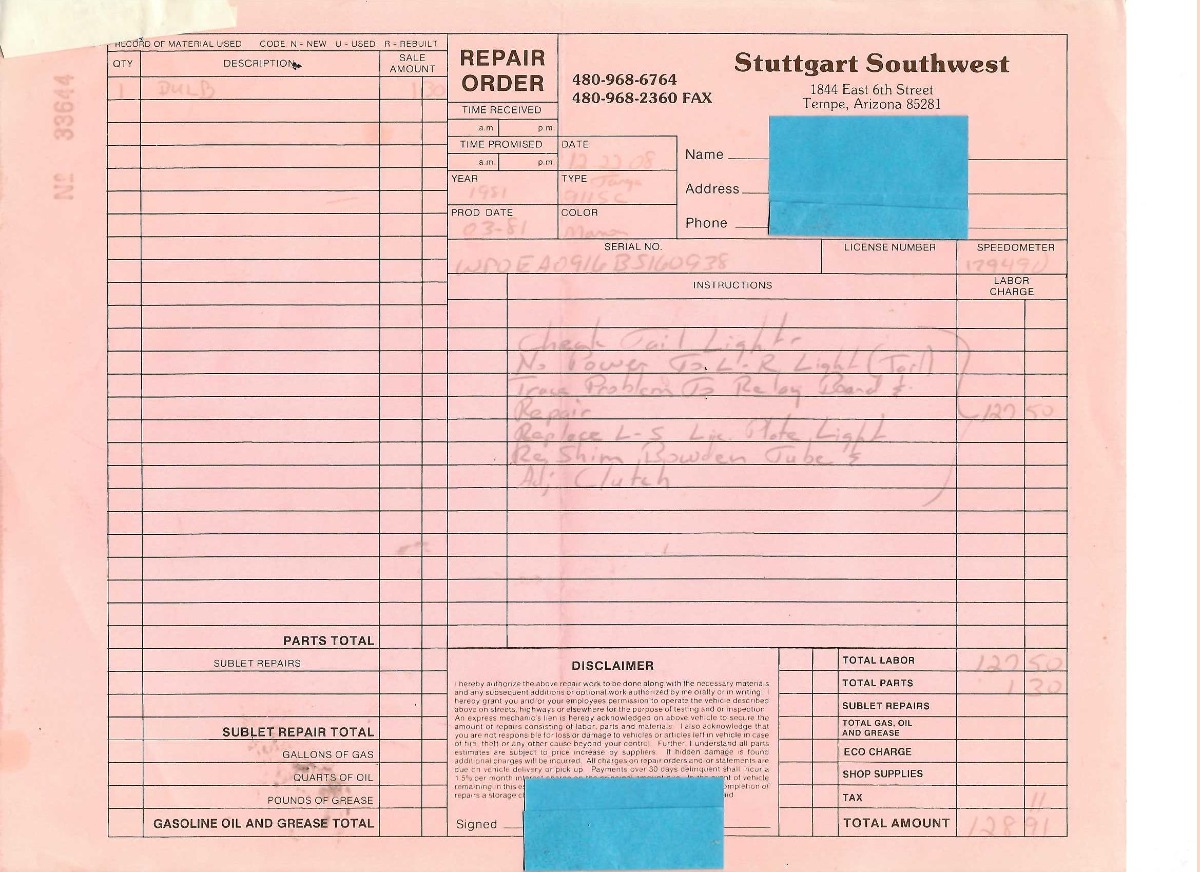 RECORD OF MATERIAL USED CODE N - NEW U - USED R - REBUILT
QTY DESCRIPTION SALE AMOUNT
1 BULB 1 30
Nº 33644
REPAIR ORDER
480-968-6764
480-968-2360 FAX
Stuttgart Southwest
1844 East 6th Street
Tempe, Arizona 85281
TIME RECEIVED
a.m p.m
TIME PROMISED
a.m p.m
DATE
12 22 08
YEAR
1981
TYPE Targa
911SC
PROD DATE
03-81
COLOR
Maroon
Name
Address
Phone
SERIAL NO.
WPOEA0916BS160938
LICENSE NUMBER
SPEEDOMETER
179490
INSTRUCTIONS
LABOR CHARGE
Check Tail Lights
No Power To L-R Light (Tail)
Trace Problem To Relay Board &
Repair
127 50
Replace L-S Lic. Plate Light
Re Shim Bowden Tube &
Adj Clutch
PARTS TOTAL
SUBLET REPAIRS
SUBLET REPAIR TOTAL
GALLONS OF GAS
QUARTS OF OIL
POUNDS OF GREASE
GASOLINE OIL AND GREASE TOTAL
DISCLAIMER
I hereby authorize the above repair work to be done along with the necessary materials
and any subsequent additions or optional work authorized by me orally or in writing. I
hereby grant you and/or your employees permission to operate the vehicle described
above on streets, highways or elsewhere for the purpose of testing and/or inspection.
An express mechanic's lien is hereby acknowledged on above vehicle to secure the
amount of repairs consisting of labor, parts and materials. I also acknowledge that
you are not responsible for loss or damage to vehicles or articles left in vehicle in case
of fire, theft or any other cause beyond your control. Further, I understand all parts
estimates are subject to price increase by suppliers. If hidden damage is found
additional charges will be incurred. All charges on repair orders and/or statements are
due on vehicle delivery or pick up. Payments over 30 days delinquent shall incur a
1.5% per month of vehicle
remaining in this
repairs a storage
Signed
TOTAL LABOR 127 50
TOTAL PARTS 1 30
SUBLET REPAIRS
TOTAL GAS, OIL AND GREASE
ECO CHARGE
SHOP SUPPLIES
TAX 11
TOTAL AMOUNT 128 91